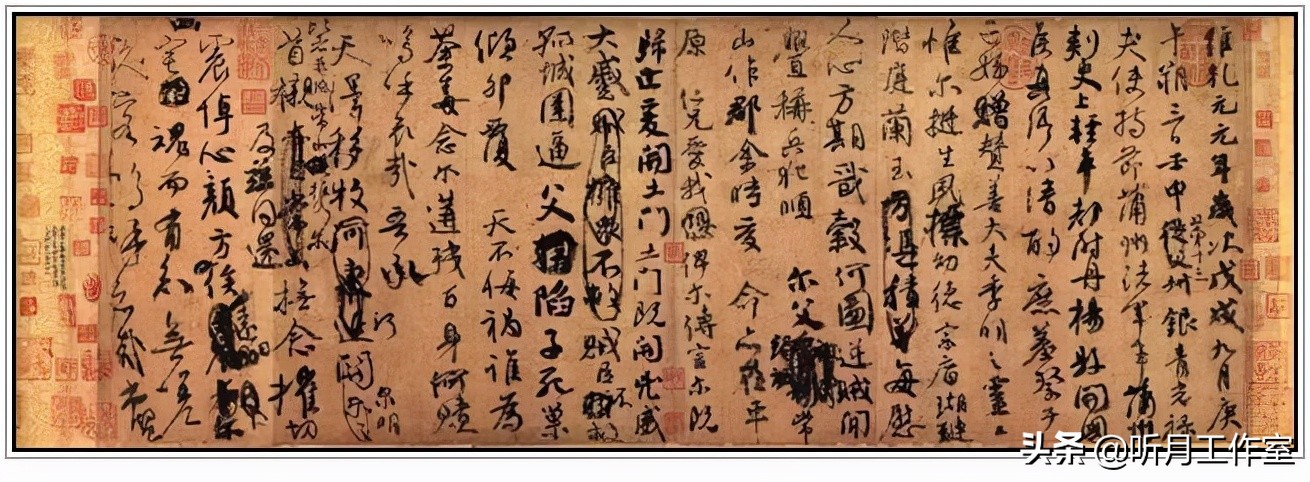 維乾元元年歲次戊戌九月庚
午朔三日壬申第十三從父叔銀青光祿
夫使持節蒲州諸軍事蒲州
刺史上輕車都尉丹楊縣開國
侯真卿以清酌庶羞祭于
亡姪贈贊善大夫季明之靈曰
惟爾挺生夙標幼德宗廟瑚璉
階庭蘭玉方憑積善每慰
人心方期戩穀何圖逆賊間
釁稱兵犯順 爾父竭誠常
山作郡余時受 命亦在平
原仁兄愛我俾爾傳言爾既
歸止爰開土門土門既開凶威
大蹙賊臣擁眾不救賊臣不救
孤城圍逼父陷子死巢
傾卵覆 天不悔禍誰為
荼毒念爾遘殘百身何贖
嗚呼哀哉吾承
天澤移牧河關泉明
比者再陷常山攜爾
首櫬及茲同還撫念摧切
震悼心顏方俟遠日
宅魂而有知無嗟
久客嗚呼哀哉尚饗
头条 @听月工作室